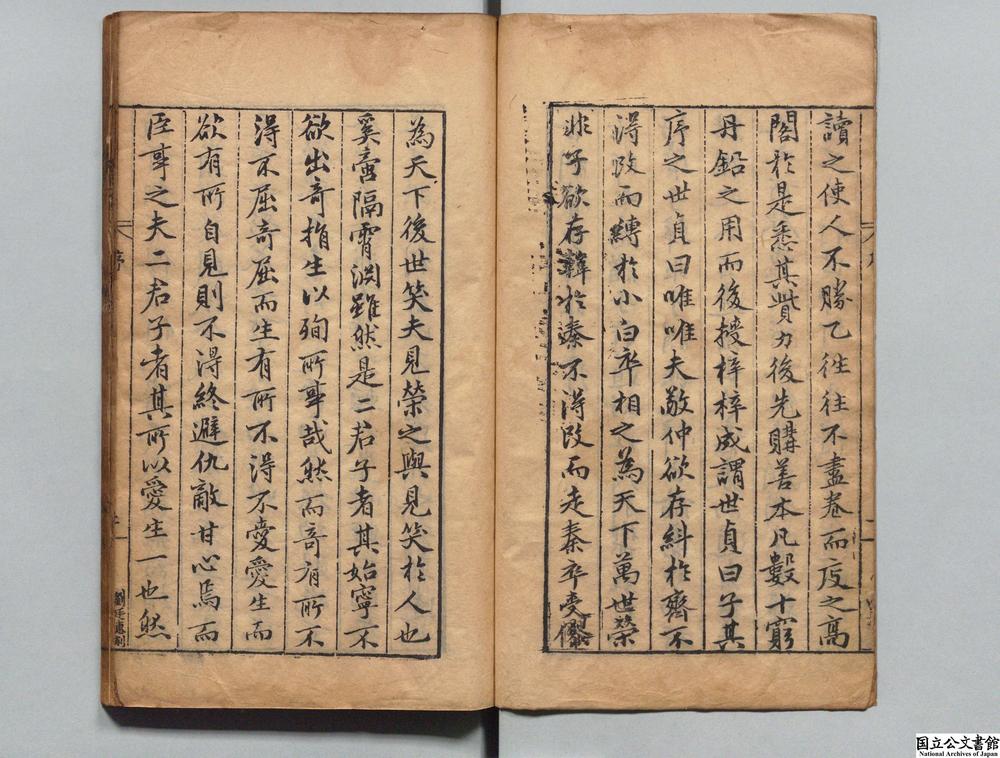 讀之使人不勝乙徃往不盡卷而庋之高
閣於是悉其貲力後先購善本凡數十窮
丹鉛之用而後授梓梓成謂世貞曰子其
序之世貞曰唯唯夫敬仲欲存糾於齊不
得改而縛於小白卒相之為天下萬世榮
非子欲存韓於秦不得改而走秦卒受僇
為天下後世笑夫見榮之與見笑於人也
奚啻隔霄淵雖然是二君子者其始寧不
欲出竒指生以殉所事哉然而竒有所不
得不屈竒屈而生有所不得不愛愛生而
欲有所自見則不得終避仇敵甘心焉而
臣事之夫二君子者其所以愛生一也然
序
国立公文書館
National Archives of Japan